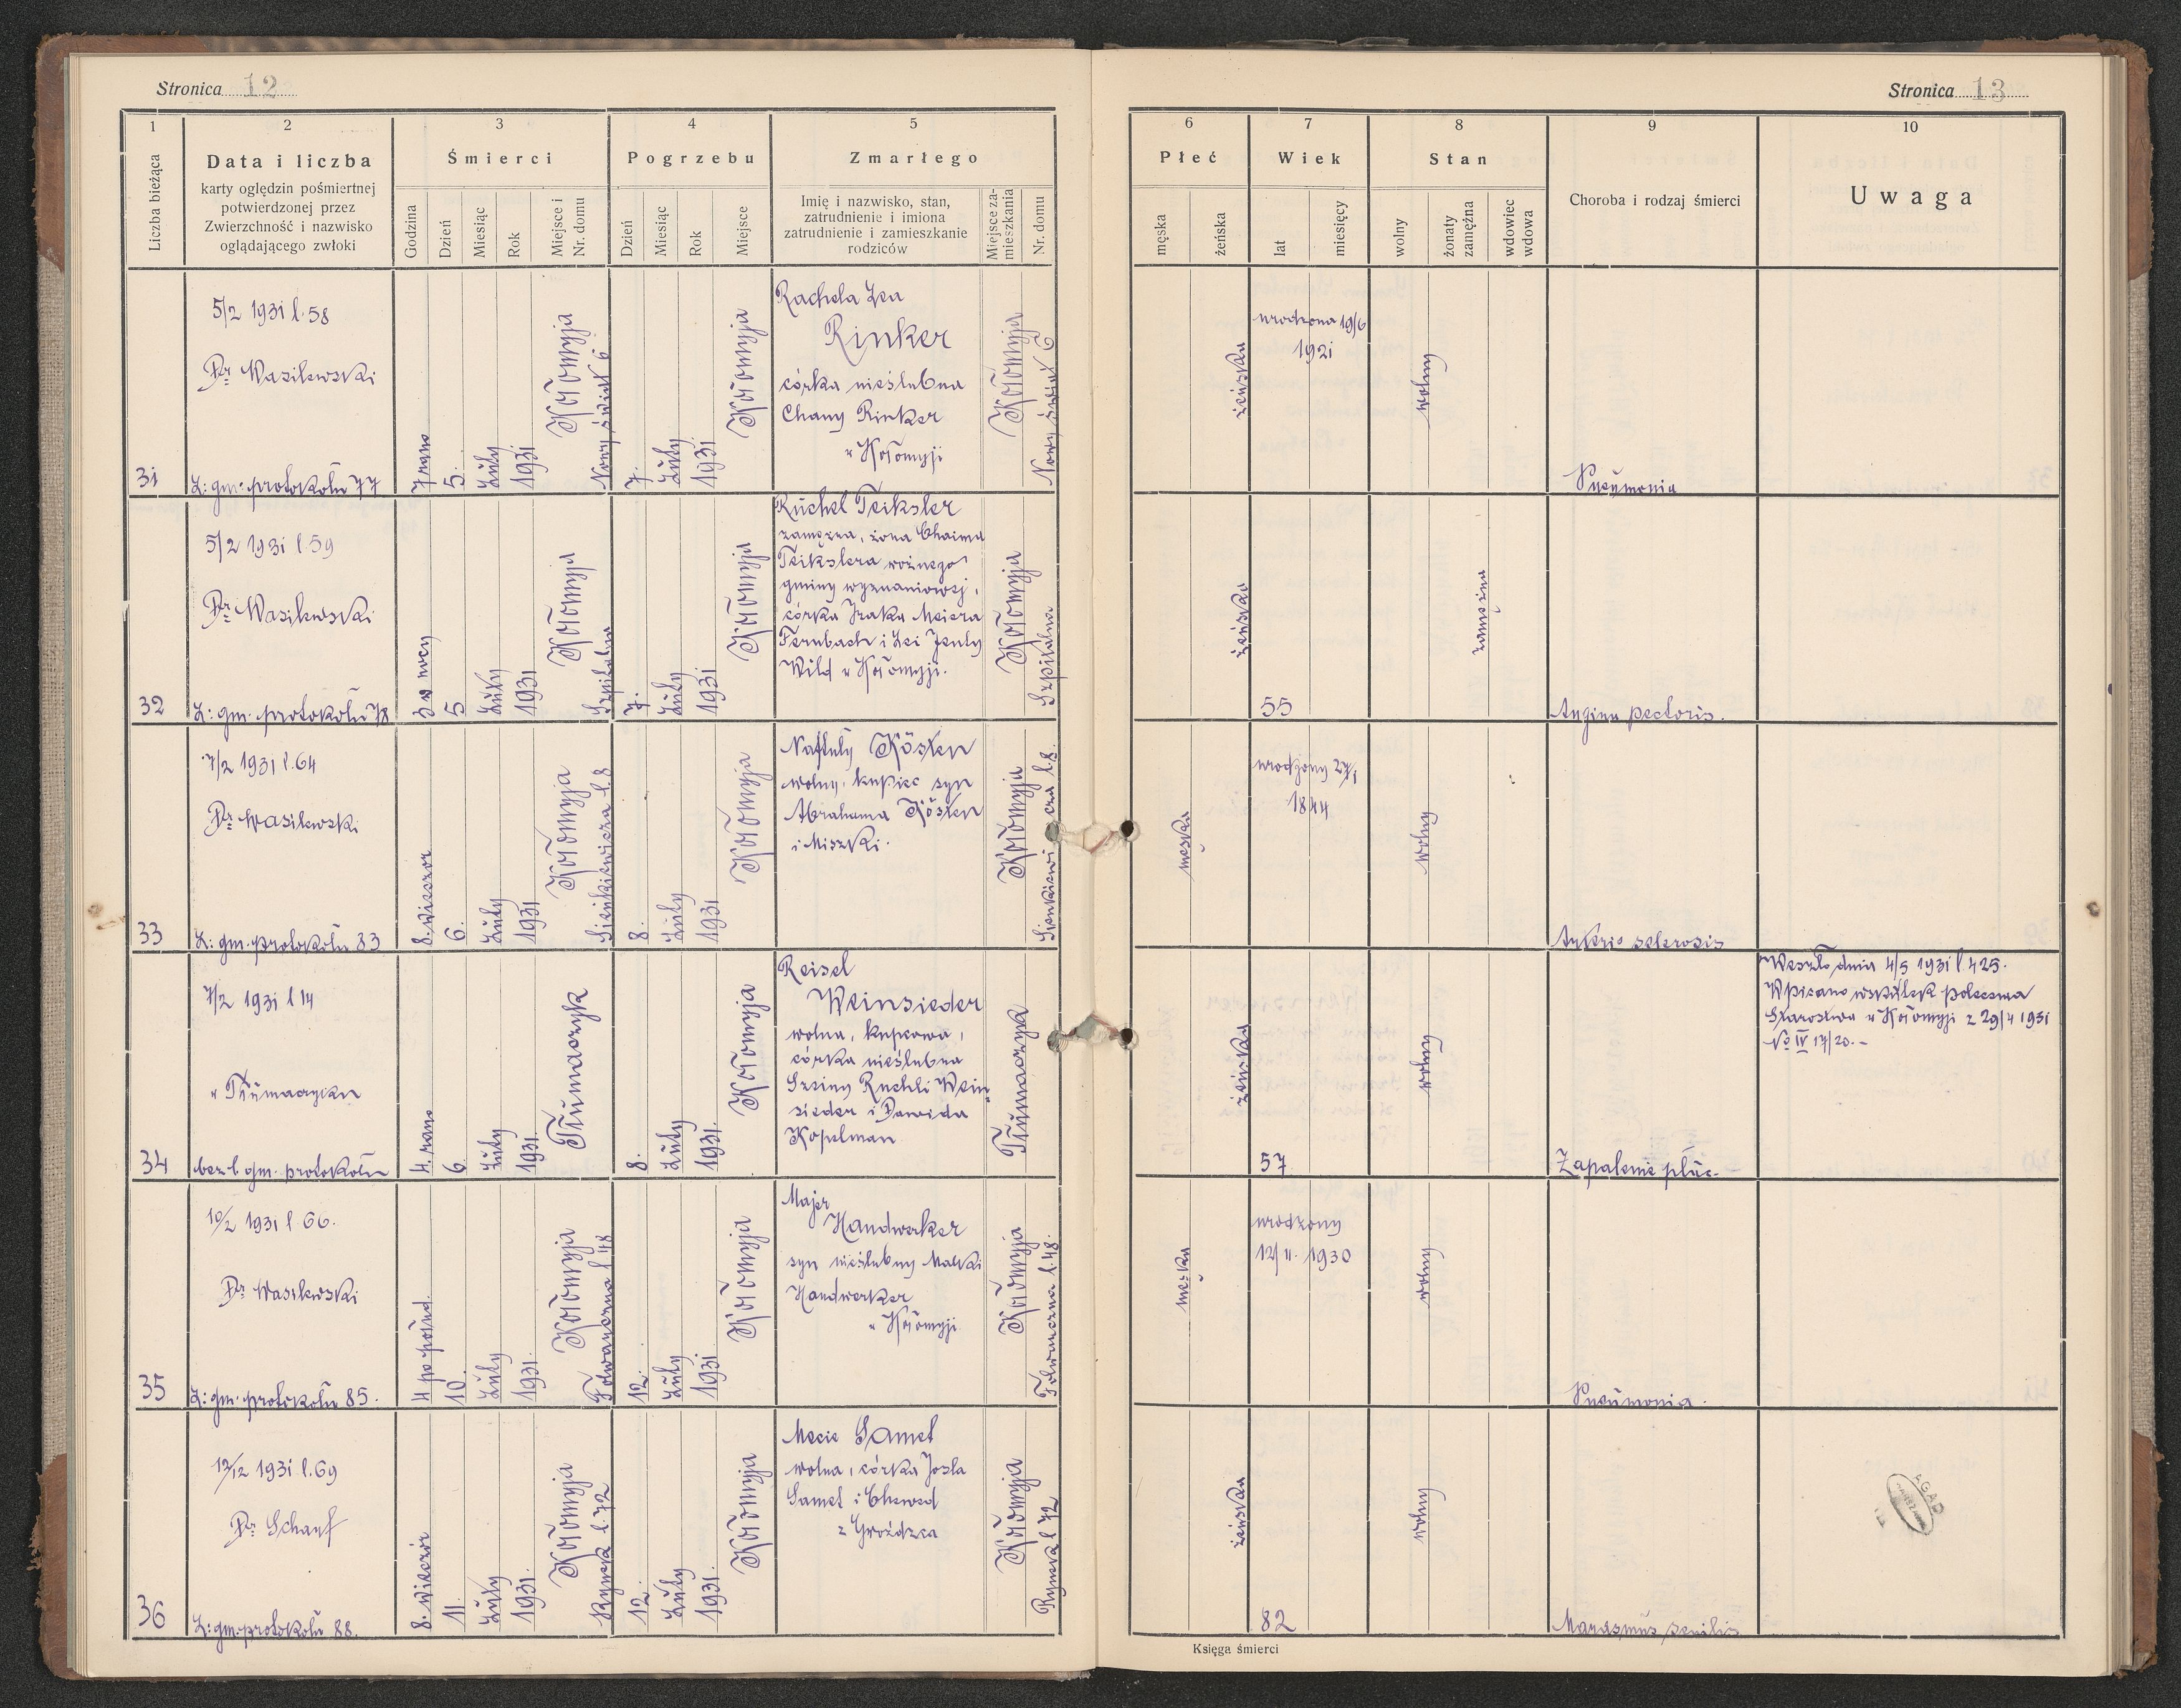 Stronica 12
1 2 3 4 5
Liczba bieżąca
Data i liczba
karty oględzin pośmiertnej
potwierdzonej przez
Zwierzchność i nazwisko
oglądającego zwłoki
Śmierci
Godzina
Dzień
Miesiąc
Rok
Miejsce i
Nr. domu
Pogrzebu
Dzień
Miesiąc
Rok
Miejsce
Zmarłego
Imię i nazwisko, stan,
zatrudnienie i imiona
zatrudnienie i zamieszkanie
rodziców
Miejsce za-
mieszkania
Nr. domu
31
5/2 1931 l. 58
Dr Wasilewski
L: gm. protokołu 77
7 rano
5.
Luty
1931
Kołomyja
Nowy świat 6
7.
Luty
1931
Kołomyja
Rachela Lea
Rinker
córka nieślubna
Chany Rinker
w Kołomyji
Kołomyja
Nowy świat 6
32
5/2 1931 l 59
Dr Wasilewski
L: gm. protokołu 78
3 w nocy
5
Luty
1931
Kołomyja
Szpitalna
7.
Luty
1931
Kołomyja
Ruchel Teiksler
zamężna, żona Chaima
Teikslera woźnego
gminy wyznaniowej,
córka Izaka Meiera
Fernbach i Lei Jenty
Wild w Kołomyji.
Kołomyja
Szpitalna
33
7/2 1931 l. 64
Dr Wasilewski
L: gm. protokołu 83
8. wieczor
6.
Luty
1931
Kołomyja
Sienkiewicza l. 8
8.
Luty
1931
Kołomyja
Naftuly Kösten
wolny, kupiec syn
Abrahama Kösten
i Miszki.
Kołomyja
Sienkiewicza l. 8.
34
7/2 1931 l 14
w Tłumaczyku
bez l. gm. protokołu
4. rano
6.
Luty
1931.
Tłumaczyk
8.
Luty
1931.
Kołomyja
Reisel
Weinsieder
wolna, kupcowa,
córka nieślubna
Ruchli Wein-
sieder i Dawida
Kopelman
Tłumaczyk
35
10/2 1931 l 66.
Dr Wasilewski
L: gm. protokołu 85.
4 po połud.
10.
Luty
1931.
Kołomyja
Folwarczna l 48
12.
Luty
1931
Kołomyja
Majer
Handwerker
syn nieślubny Malki
Handwerker
w Kołomyji.
Kołomyja
Folwarczna l. 48.
36
12/12 1931 l. 69
Dr Scharf
L: gm. protokołu 88.
8. wieczór
11.
Luty
1931.
Kołomyja
Rynek l. 72
12.
Luty
1931.
Kołomyja
Mecie Samet
wolna, córka Josla
Samet i Chewed
z Gwoźdzca
Kołomyja
Rynek l 72
Stronica 13
6 7 8 9 10
Płeć
męska
żeńska
Wiek
lat
miesięcy
Stan
wolny
żonaty
zamężna
wdowiec
wdowa
Choroba i rodzaj śmierci
Uwaga
żeńska
urodzona 19/6
1921
wolny
Pneumonia
żeńska
55
zamężna
Angina pectoris.
męska
urodzony 27/1
1844
wolny
Arterio sclerosis
żeńska
57
wolny
Zapalenie płuc.
Weszło dnia 4/5 1931 l 425.
Wpisano wskutek polecenia
Starostwa w Kołomyji z 29/4 1931
No IV 17/20.-
męska
urodzony
12/11. 1930
wolny
Pneumonia.
żeńska
82
wolny
Marasmus senilis
AGAD
Księga śmierci